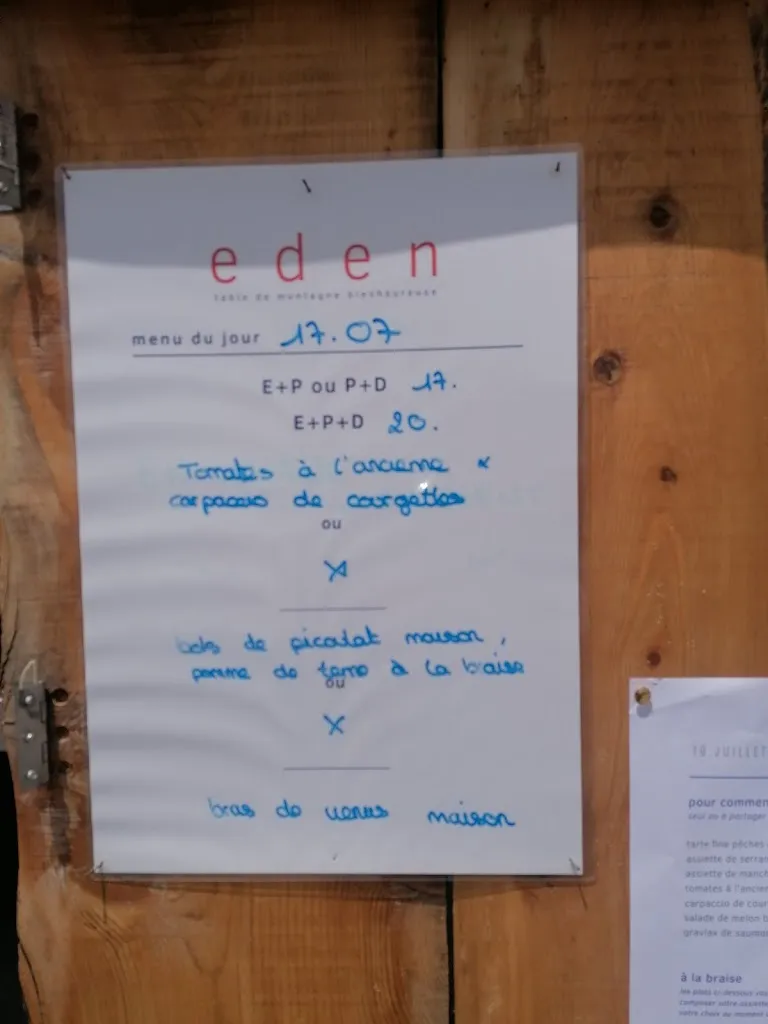 eden
table de montagne bienheureuse
menu du jour 17.07
E+P ou P+D 17.
E+P+D 20.
Tomates à l'ancienne &
carpaccio de courgettes
ou
X
bols de picolat maison,
pomme de terre à la braise
ou
X
bras de venus maison
19 JUILLET
pour commen
seul ou à partager
tarte fine pêches
assiette de serran
assiette de manch
tomates à l'ancien
carpaccio de cour
salade de melon b
gravlax de saumo
à la braise
composer votre assiette
votre choix au moment